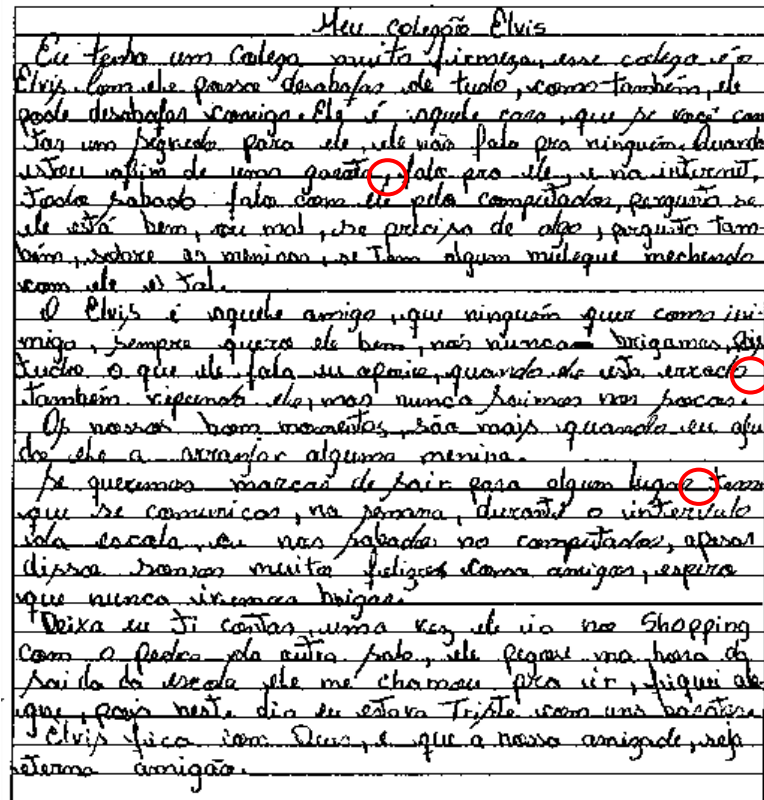 Meu colegão Elvis
Eu tenho um colega muito firmeza, esse colega é o
Elvis com ele posso desabafar de tudo, como também, ele
pode desabafar comigo. Ele é aquele cara, que se você con
tar um segredo para ele, ele não fala pra ninguém. Quando
estou afim de uma garota, falo pro ele, e na internet,
todo sabado falo com ele pelo computador, pergunto se
ele está bem, ou mal, se precisa de algo, pergunto tam-
bém, sobre as meninas, se tem algum muleque mechendo
com ele e tal.
O Elvis é aquele amigo, que ninguém quer como ini-
migo, sempre quero ele bem, nós nunca brigamos,
tudo o que ele fala eu apoio, quando ele esta errado
também repeendo ele, mas nunca saimos nos socos.
Os nossos bons momentos, são mais quando eu aju
do ele a arranjar alguma menina.
Se queremos marcar de sair para algum lugar temos
que se comunicar, na semana, durante o intervalo
da escola, ou nos sabados no computador, apesar
disso somos muito felizes como amigos, espero
que nunca iremos brigar.
Deixa eu ti contar, uma vez ele ia no Shopping
com o Pedro da outra sala, ele pegou na hora da
saida da escola ele me chamou pra ir, fiquei ale
gre, pois neste dia eu estava triste com uns
Elvis fica com Deus, e que a nossa amizade, seja
eterna amigão.